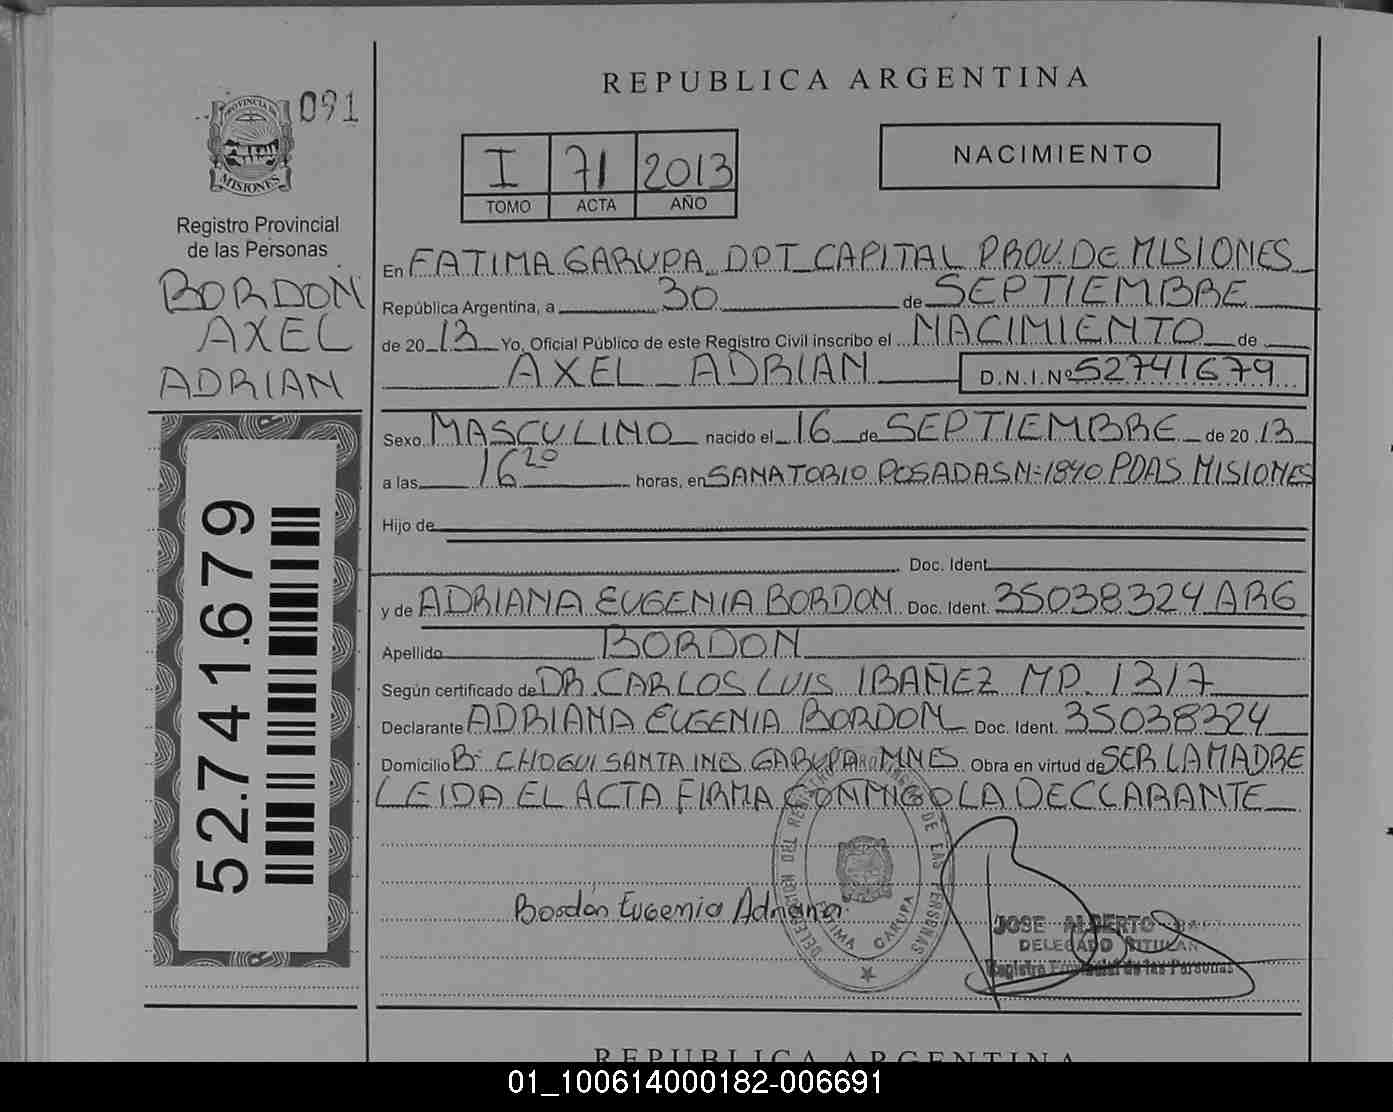 REPUBLICA ARGENTINA
PROVINCIA DE
MISIONES
091
I 71 2013
TOMO ACTA AÑO
NACIMIENTO
Registro Provincial
de las Personas
BORDON
AXEL
ADRIAN
52.741.679
En FATIMA GARUPA DPT CAPITAL PROV. DE MISIONES
República Argentina, a 30 de SEPTIEMBRE
de 2013 Yo, Oficial Público de este Registro Civil inscribo el NACIMIENTO de
AXEL ADRIAN D.N.I.Nº 52741679
Sexo MASCULINO nacido el 16 de SEPTIEMBRE de 2013
a las 16 20 horas, en SANATORIO POSADAS N=1840 PDAS MISIONES
Hijo de
Doc. Ident.
y de ADRIANA EUGENIA BORDON Doc. Ident. 35038324 ARG
Apellido BORDON
Según certificado de DR. CARLOS LUIS IBAÑEZ MP. 1317
Declarante ADRIANA EUGENIA BORDON Doc. Ident. 35038324
Domicilio Bº CHOGUI SANTA INES GARUPA MNES Obra en virtud de SER LA MADRE
LEIDA EL ACTA FIRMA CONMIGO LA DECCLARANTE
Bordón Eugenia Adriana
DELEGACION DEL REGISTRO DE LAS PERSONAS
FATIMA GARUPA
JOSE ALBERTO
DELEGADO TITULAR
Registro Provincial de las Personas
REPUBLICA ARGENTINA
01_100614000182-006691